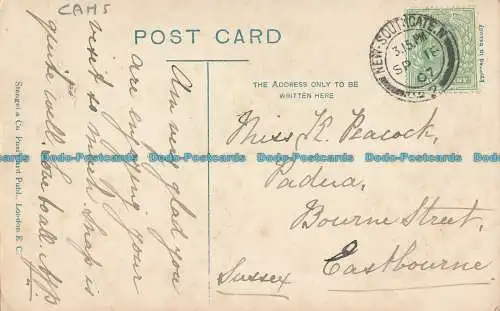 CAMS
POST CARD
THE ADDRESS ONLY TO BE
WRITTEN HERE
NEW-SOUTHGATE.N
3.15 PM
SP 12
07
Am very glad you
are enjoying your
visit so much. Snap is
quite well. Love to all.
Stengel & Co. Post Card Publ., London E.C.
Miss K. Peacock,
Padua,
Bourne Street,
Eastbourne
Sussex
Dodo-Postcards Dodo-Postcards Dodo-Postcards Dodo-Postcards Dodo-Postcards